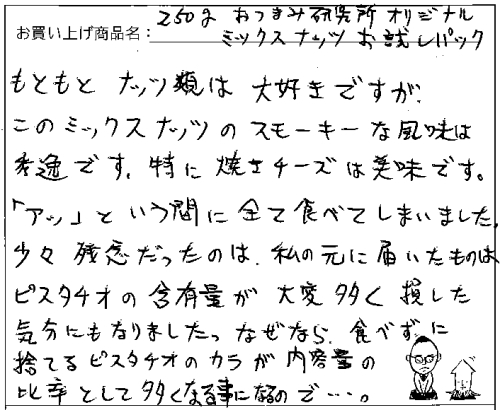 250g おつまみ研究所 オリジナル
お買い上げ商品名: ミックスナッツ お試しパック
もともと ナッツ類は 大好きですが、
このミックスナッツの スモーキーな風味は
秀逸です。特に 焼きチーズは美味です。
「アッ」という間に全て食べてしまいました。
少々 残念だったのは、私の元に届いたものは
ピスタチオの 含有量が 大変多く 損した
気分にもなりましたっ なぜなら、食べずに
捨てるピスタチオのカラが内容量の
比率として多くなる事になるので…。